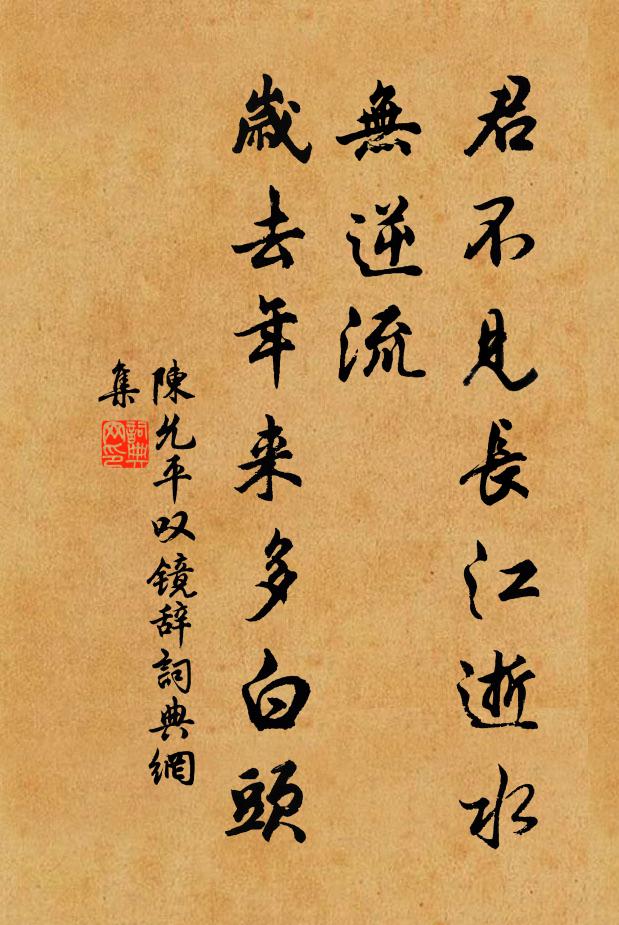 君不見長江逝水
無逆流
歲去年来多白頭
陳允平叹镜辞詞典網
集
詞典
网印